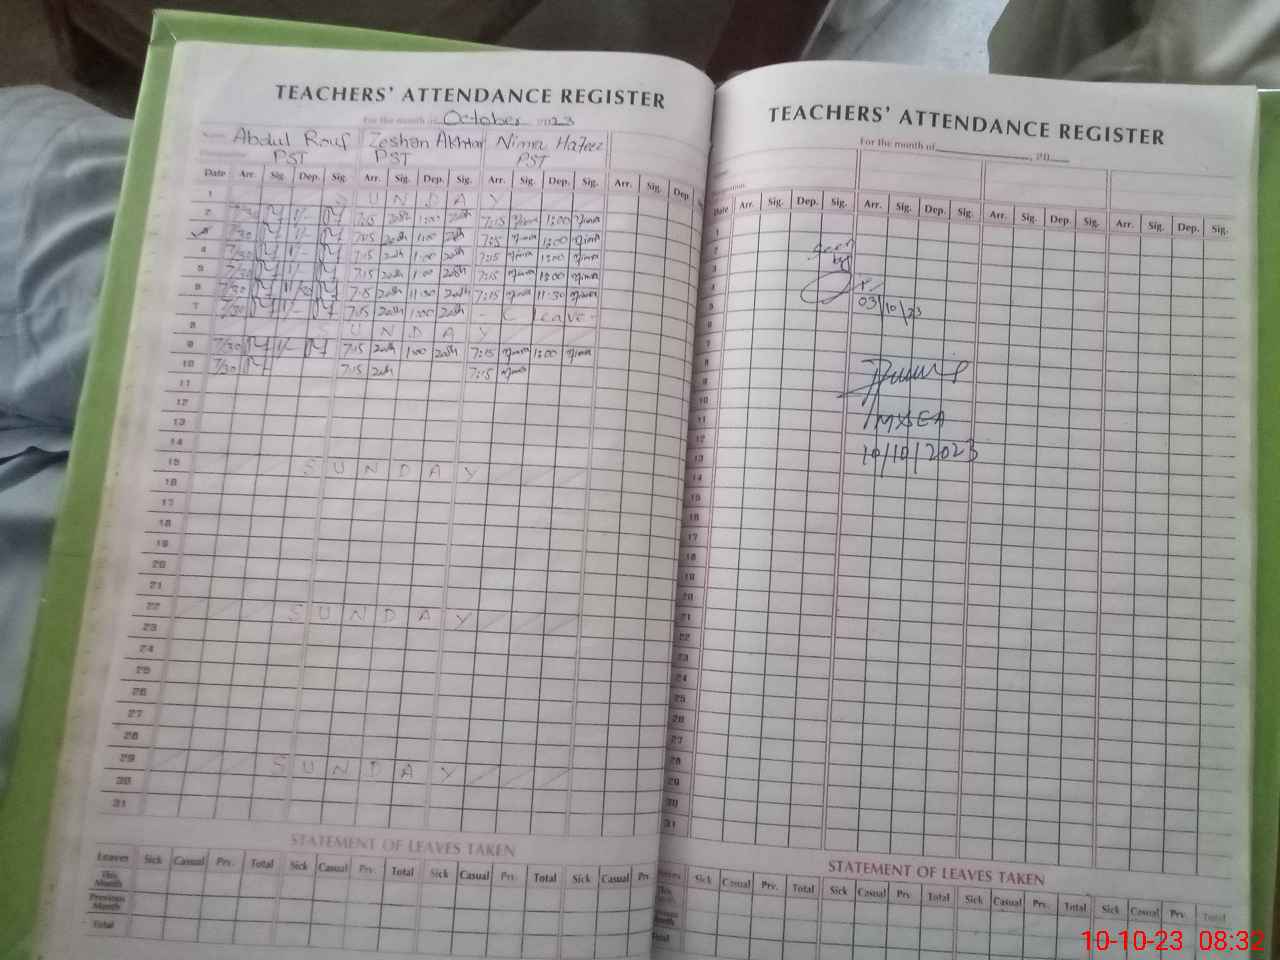 TEACHERS' ATTENDANCE REGISTER
For the month of October 2023
Name Abdul Rouf Zeshan Akhtar Nimra Hafeez
PST PST PST
Date Arr. Sig. Dep. Sig. Arr. Sig. Dep. Sig. Arr. Sig. Dep. Sig. Arr. Sig. Dep
1 SUNDAY
2 7/30 1/- 7:15 1:00 7:15 1:00
3 7/30 1/- 7:15 1:00 7:15 1:00
4 7/30 1/- 7:15 1:00 7:15 1:00
5 7/30 1/- 7:15 1:00 7:15 1:00
6 7/30 11/30 7:15 11:30 7:15 11:30
7 7/30 1/- 7:15 1:00 - C Leave -
8 SUNDAY
9 7/30 1/- 7:15 1:00 7:15 1:00
10 7/30 7:15 7:15
11
12
13
14
15 SUNDAY
16
17
18
19
20
21
22 SUNDAY
23
24
25
26
27
28
29 SUNDAY
30
31
STATEMENT OF LEAVES TAKEN
Leaves Sick Casual Prv. Total Sick Casual Prv. Total Sick Casual Prv. Total Sick Casual Prv
This Month
Previous Month
Total
TEACHERS' ATTENDANCE REGISTER
For the month of , 20
Date Arr. Sig. Dep. Sig. Arr. Sig. Dep. Sig. Arr. Sig. Dep. Sig. Arr. Sig. Dep. Sig.
1
2
3
4
5
6
7
8
9
10
11
12
13
14
15
16
17
18
19
20
21
22
23
24
25
26
27
28
29
30
31
Seen by
03/10/23
10/10/2023
STATEMENT OF LEAVES TAKEN
Leaves Sick Casual Prv. Total Sick Casual Prv Total Sick Casual Prv. Total Sick Casual Prv Total
This
Total
10-10-23 08:32